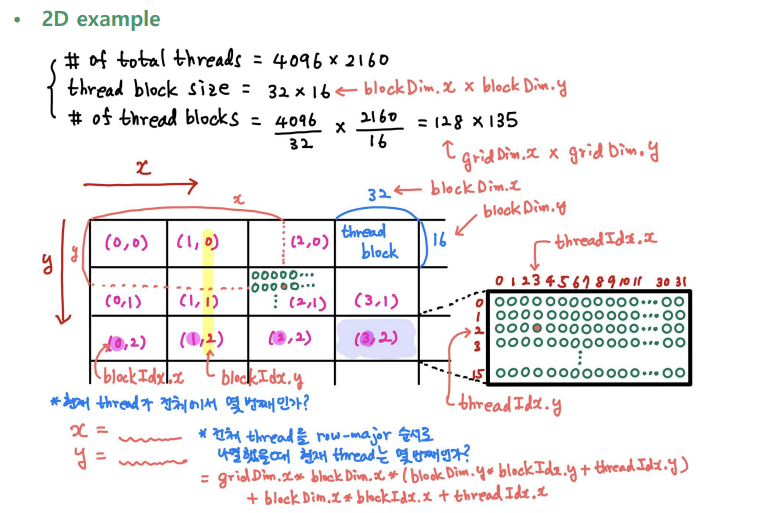 • 2D example
# of total threads = 4096 × 2160
thread block size = 32 × 16 ← blockDim.x × blockDim.y
# of thread blocks = 4096/32 × 2160/16 = 128 × 135
gridDim.x × gridDim.y
x
x
32 ← blockDim.x
blockDim.y
y
y
(0,0) (1,0) (2,0) thread block
16
threadIdx.x
0 1 2 3 4 5 6 7 8 9 10 11 30 31
(0,1) (1,1) (2,1) (3,1)
0
1
2
3
15
(0,2) (1,2) (2,2) (3,2)
blockIdx.x
blockIdx.y
threadIdx.y
* 현재 thread가 전체에서 몇 번째인가?
x =
y =
* 전체 thread를 row-major 순서로
나열했을때 현재 thread는 몇 번째인가?
= gridDim.x * blockDim.x * (blockDim.y * blockIdx.y + threadIdx.y)
+ blockDim.x * blockIdx.x + threadIdx.x